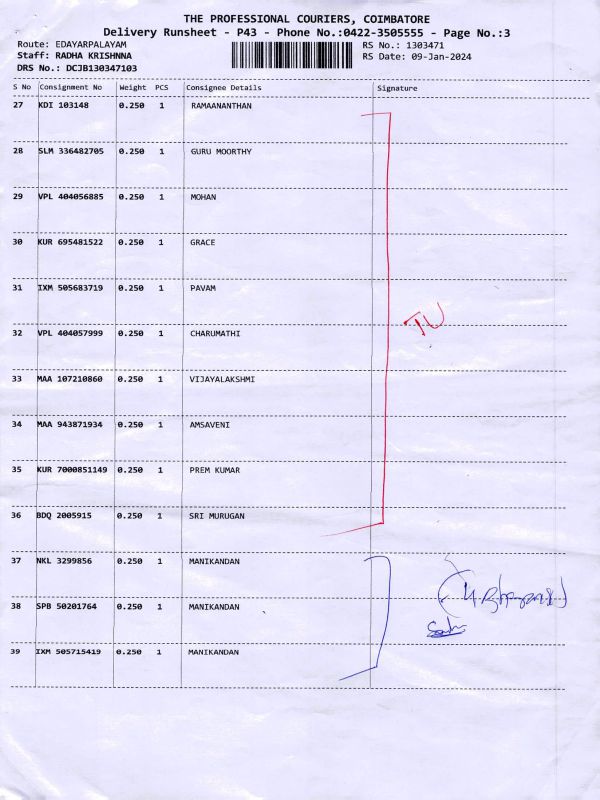 THE PROFESSIONAL COURIERS, COIMBATORE
Delivery Runsheet - P43 - Phone No.:0422-3505555 - Page No.:3
Route: EDAYARPALAYAM RS No.: 1303471
Staff: RADHA KRISHNNA RS Date: 09-Jan-2024
DRS No.: DCJB130347103
S No Consignment No Weight PCS Consignee Details Signature
27 KDI 103148 0.250 1 RAMAANANTHAN
28 SLM 336482705 0.250 1 GURU MOORTHY
29 VPL 404056885 0.250 1 MOHAN
30 KUR 695481522 0.250 1 GRACE
31 IXM 505683719 0.250 1 PAVAM
TU
32 VPL 404057999 0.250 1 CHARUMATHI
33 MAA 107210860 0.250 1 VIJAYALAKSHMI
34 MAA 943871934 0.250 1 AMSAVENI
35 KUR 7000851149 0.250 1 PREM KUMAR
36 BDQ 2005915 0.250 1 SRI MURUGAN
37 NKL 3299856 0.250 1 MANIKANDAN
38 SPB 50201764 0.250 1 MANIKANDAN
39 IXM 505715419 0.250 1 MANIKANDAN